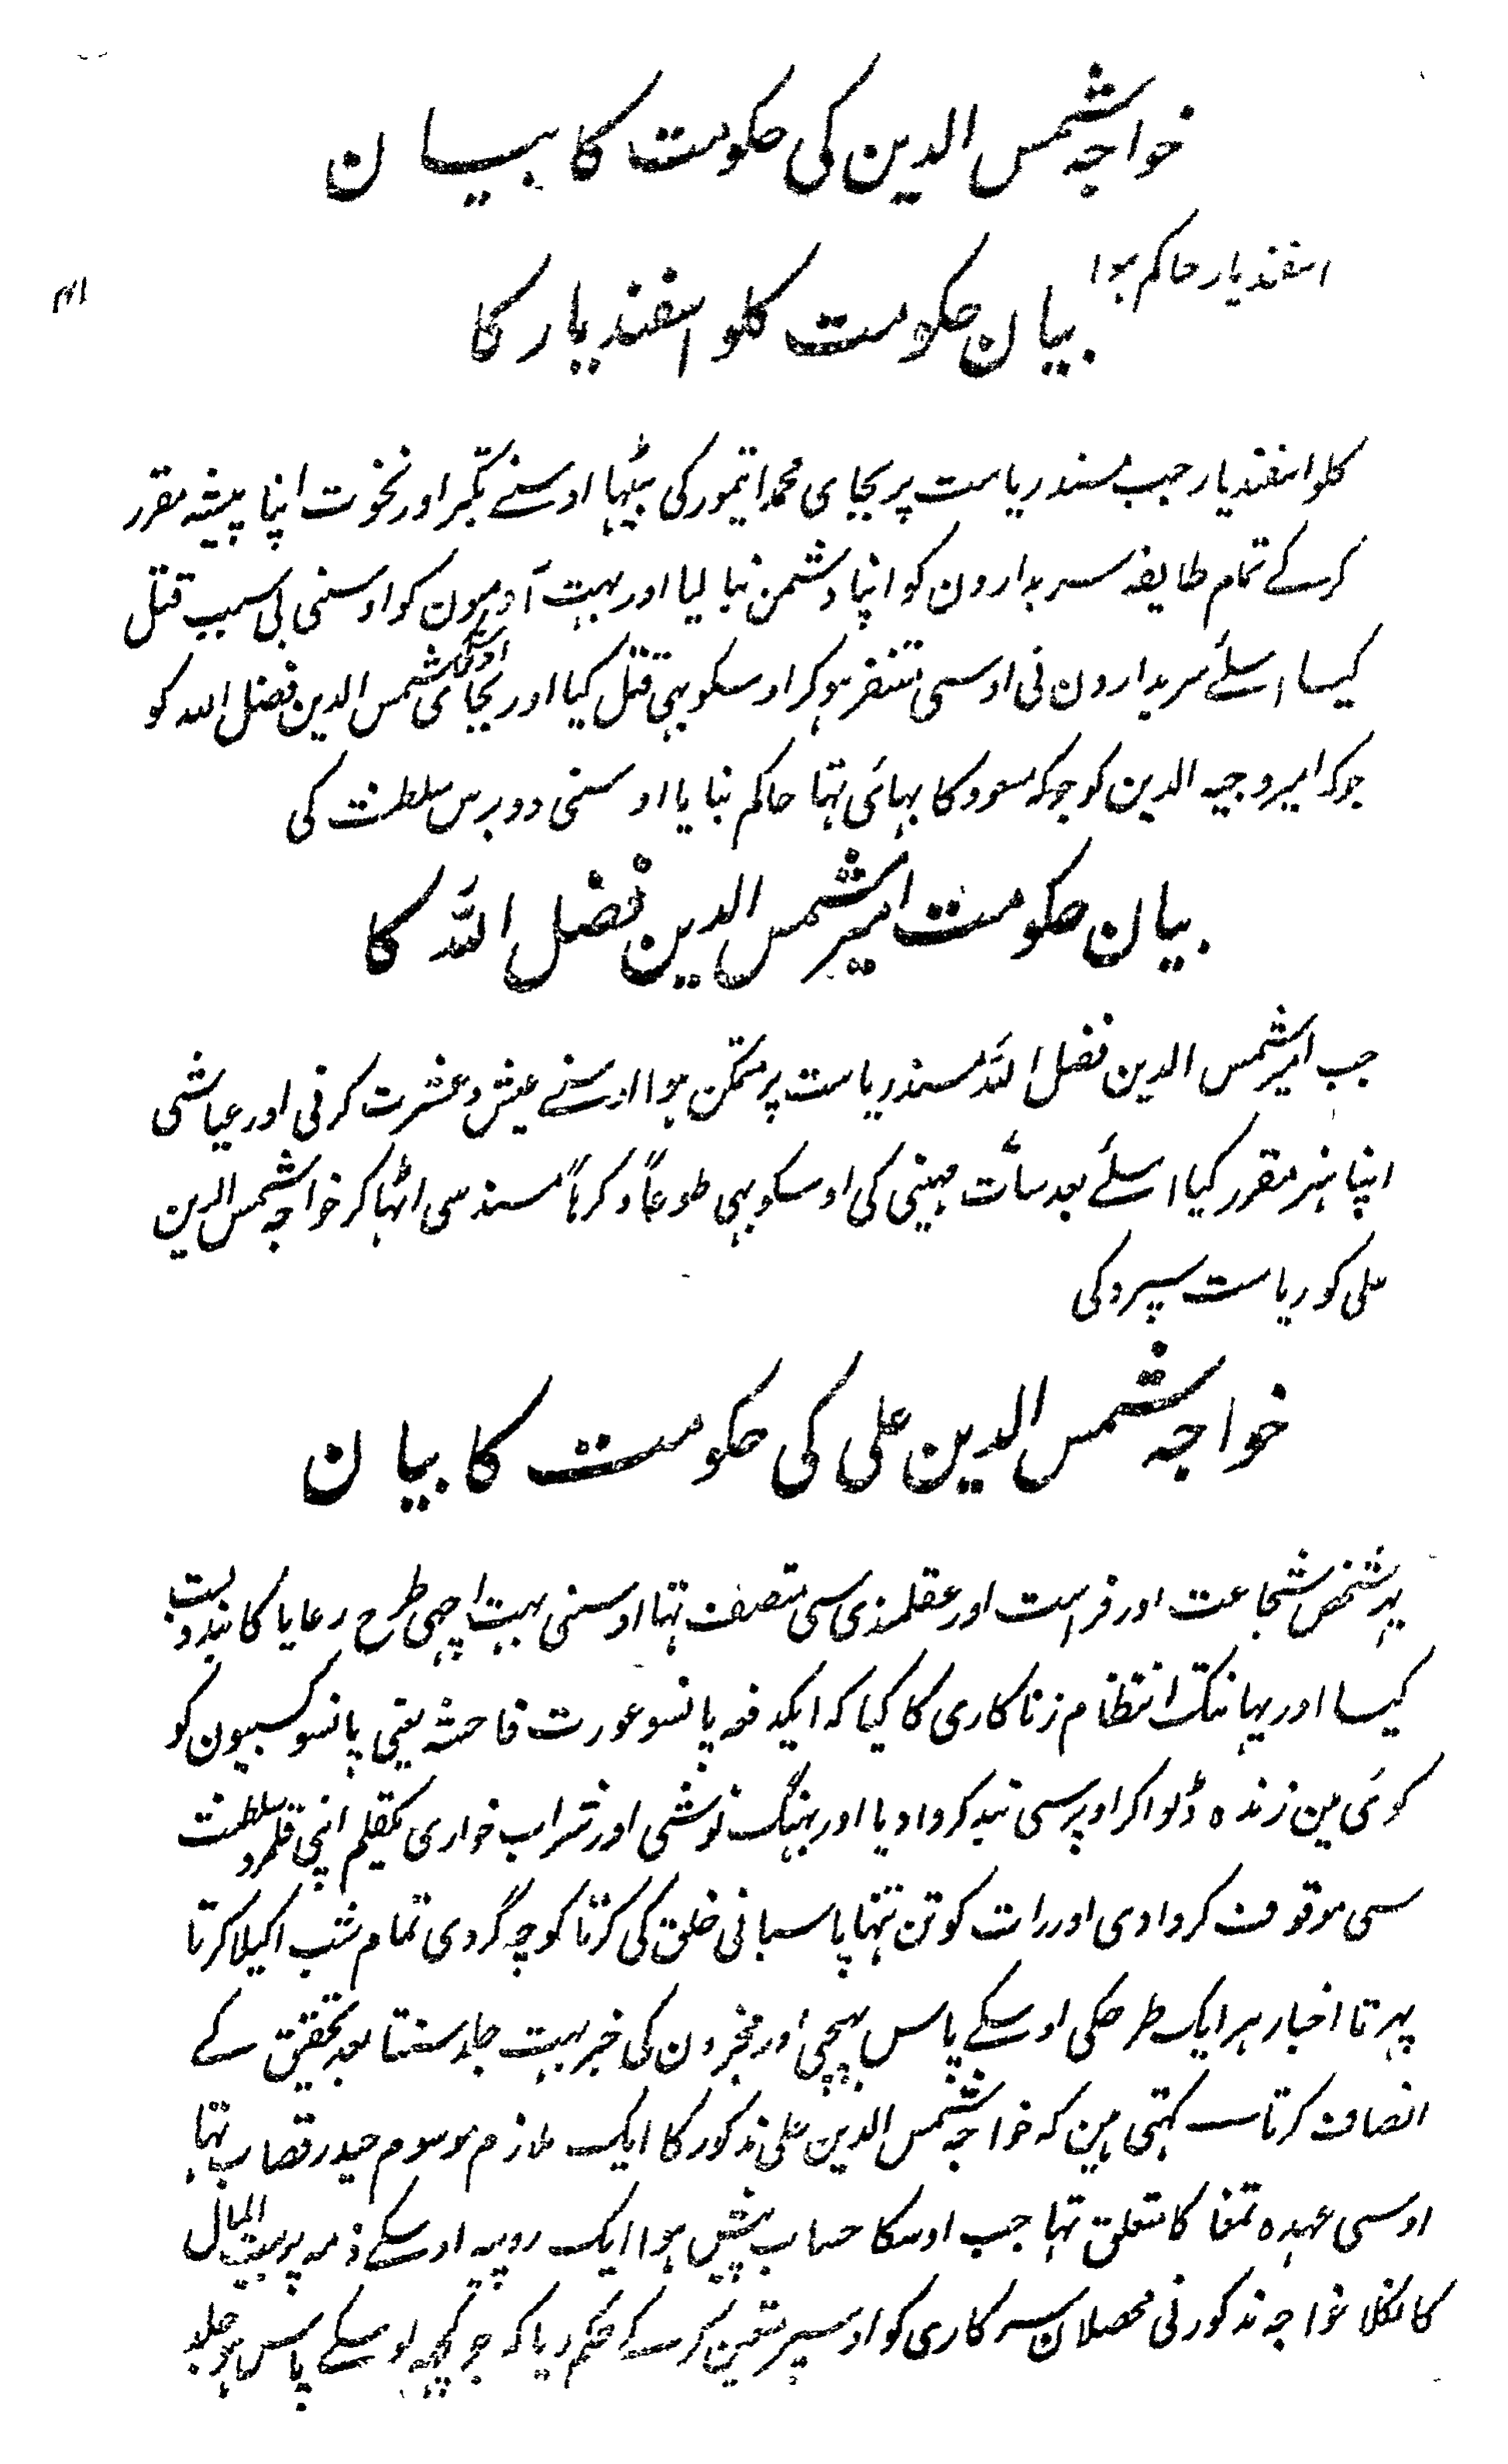 خواجہ شمس الدین کی حکومت کا بیان
اسفندیار حاکم ہوا
بیان حکومت کلو اسفندیار کا
کلو اسفندیار جب مسند ریاست پر بجای محمد ایتمور کی بیٹہا اوسنے تکبر اور نخوت اپنا پیشہ مقرر
کرکے تمام طایفہ سربدارون کو اپنا دشمن بنا لیا اور بہت آدمیون کو اوسنی بی سبب قتل
کیا اسلئے سربدارون نی اوسی متنفر ہوکر اوسکو بہی قتل کیا اور بجای اوسکی شمس الدین فضل اللہ کو
جوکہ امیر وجیہ الدین کو جوکہ مسعود کا بہائی تہا حاکم بنایا اوسنی دو برس سلطنت کی
بیان حکومت امیر شمس الدین فضل اللہ کا
جب امیر شمس الدین فضل اللہ مسند ریاست پر متمکن ہوا اوسنے عیش و عشرت کرنی اور عیاشی
اپنا ہنر مقرر کیا اسلئے بعد سات مہینی کی اوسکو بہی طوعاً و کرہاً مسند سی اٹہا کر خواجہ شمس الدین
علی کو ریاست سپرد کی
خواجہ شمس الدین علی کی حکومت کا بیان
یہ شخص شجاعت اور فراست اور عقلمندی سی متصف تہا اوسنی بہت اچہی طرح رعایا کا بندوبست
کیا اور یہانتک انتظام زناکاری کا کیا کہ ایکدفعہ پانسو عورت فاحشہ یعنی پانسو کسبیون کو
کوئی مین زندہ ڈلوا کر اوپر سی بند کروا دیا اور بہنگ نوشی اور شراب خواری یکقلم اپنی قلمرو سلطنت
سی موقوف کروا دی اور رات کو تن تنہا پاسبانی خلق کی کرتا کوچہ گردی تمام شب اکیلا کرتا
پہرتا اخبار ہر ایک طرحکی اوسکے پاس پہچی اور مخبرون کی خبر بہت جلد سنتا بعد تحقیق کے
انصاف کرتا کہتی ہین کہ خواجہ شمس الدین علی مذکور کا ایک ملازم موسوم حیدر قصاب تہا
اوسی عہدہ تمغا کا متعلق تہا جب اوسکا حساب پیش ہوا ایک روپیہ اوسکے ذمہ پر بیت المال
کا نکلا خواجہ مذکور نی محصلان سرکاری کو اوسپر متعین کرکے حکم دیا کہ جو کچہہ اوسکے پاس ہو جلد